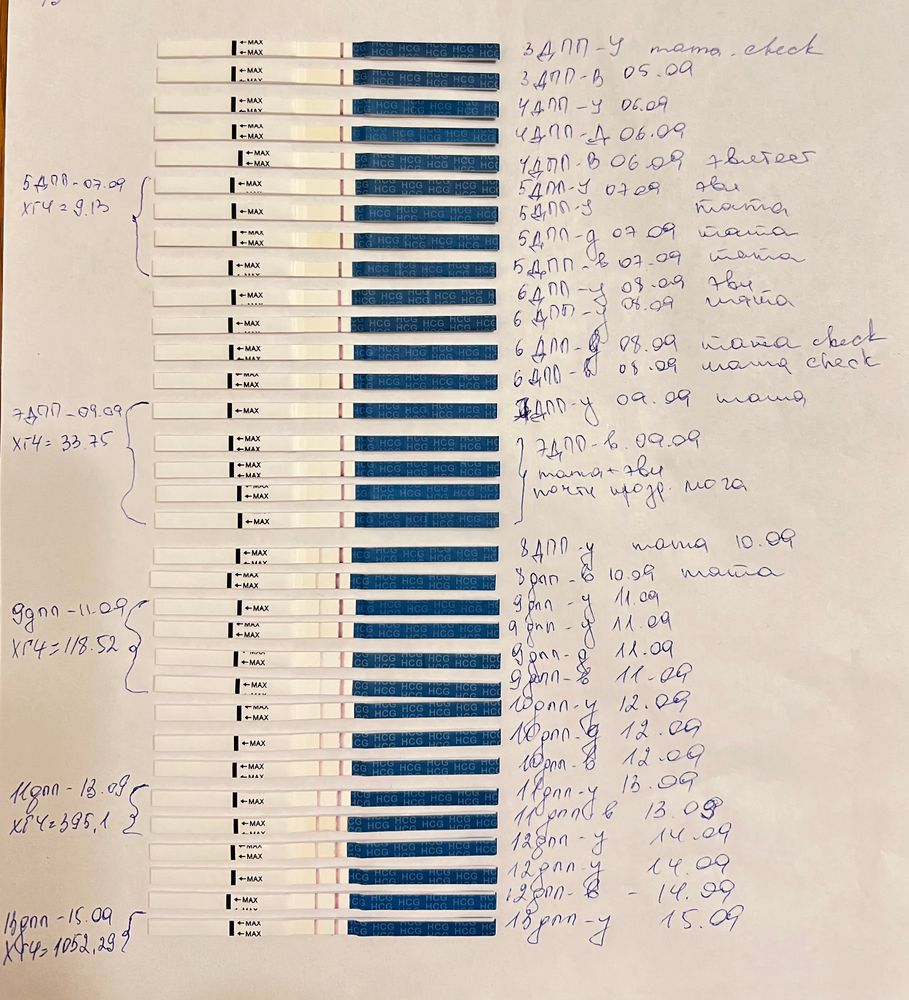 3ДПП-У mama.check
3ДПП-В 05.09
4ДПП-У 06.09
4ДПП-Д 06.09
4ДПП-В 06.09 Эвитест
5ДПП-07.09
ХГЧ = 9.13
5ДПП-У 07.09 Эви
5ДПП-У мата
5ДПП-Д 07.09 мата
5ДПП-В 07.09 мата
6ДПП-У 08.09 Эви
6ДПП-У 08.09 мата
6ДПП-Д 08.09 мата check
6ДПП-В 08.09 мата check
7ДПП-09.09
ХГЧ = 33.75
7ДПП-У 09.09 мата
7ДПП-В.09.09
мата+Эви
почти прозр. моча
8ДПП-У мата 10.09
8дпп-В 10.09 мата
9дпп-11.09
ХГЧ = 118.52
9дпп-У 11.09
9дпп-У 11.09
9дпп-д 11.09
9дпп-В 11.09
10дпп-У 12.09
10дпп-д 12.09
10дпп-В 12.09
11дпп-13.09
ХГЧ=395,1
11дпп-У 13.09
11дпп-В 13.09
12дпп-У 14.09
12дпп-У 14.09
12дпп-В - 14.09
13дпп-15.09
ХГЧ=1052,29
13дпп-У 15.09
←MAX
HCG HCG HCG HCG